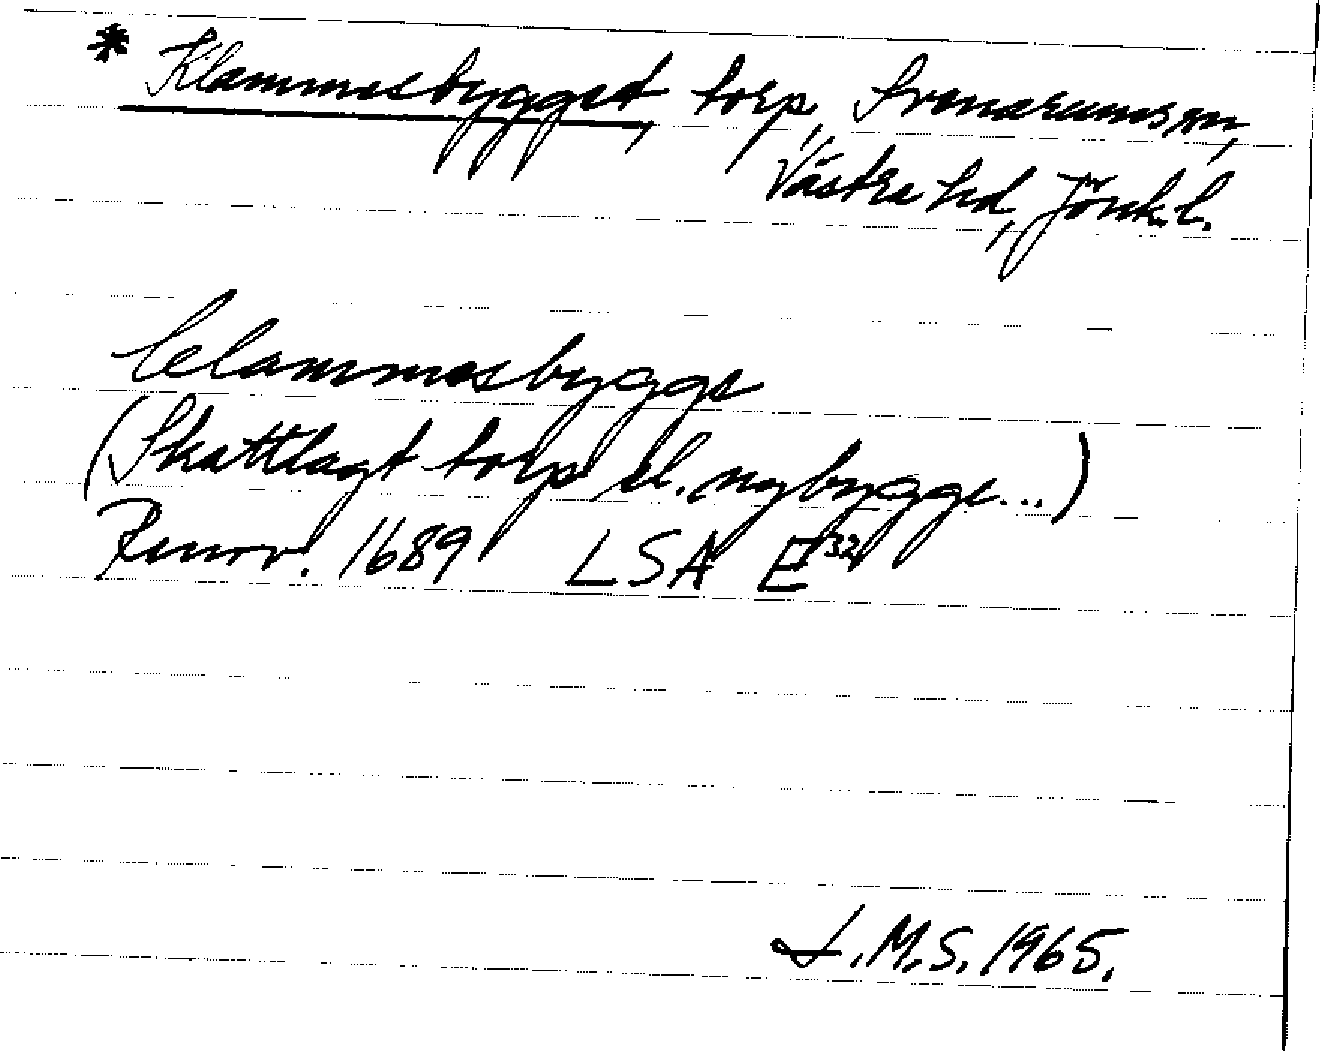 * Klammesbygget, torp, Svenarums sn,
Västra hd, Jönk. l.
Clammesbygge
(Skattlagt torp el. nybygge...)
Renov. 1689 LSA E32
L.M.S. 1965.